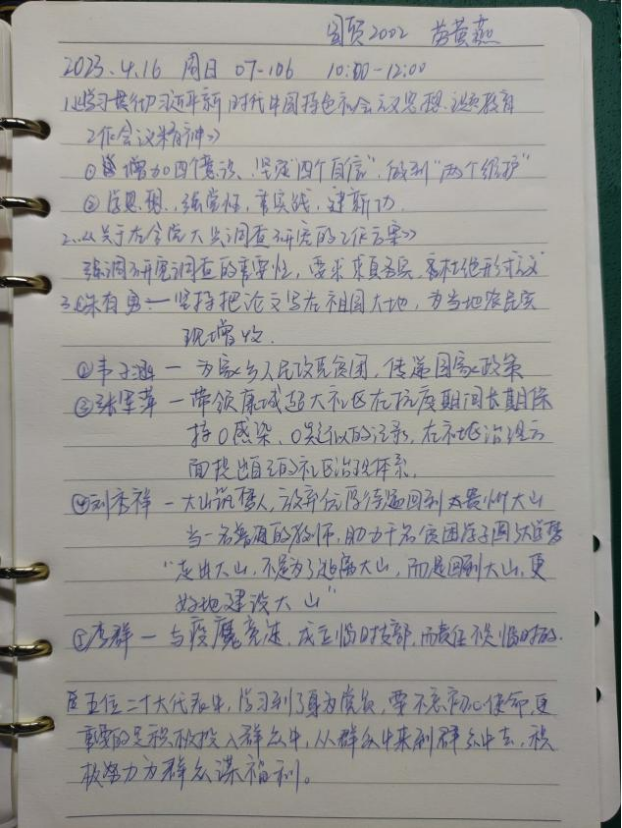 国贸2002 黄燕
2023.4.16 周日 07-106 10:00-12:00
1.《学习贯彻习近平新时代中国特色社会主义思想主题教育
工作会议精神》
① 增加四个意识、坚定“四个自信”,做到“两个维护”
② 学思想、强党性、重实践、建新功
2.《关于在全党大兴调查研究的工作方案》
强调研究调查的重要性,要求求真务实、杜绝形式主义
3.①朱有勇—坚持把论文写在祖国大地,为当地农民实
现增收.
② 韦子涵—为家乡人民攻克贫困,传递国家政策
③张军萍—带领康城超大社区在抗疫期间长期保
持0感染、0疑似的记录,在社区治理方
面提出自己的社区治理体系.
④刘秀祥—大山筑梦人,放弃优厚待遇回到贵州大山
当一名普通的教师,助力千名贫困学子圆大学梦
“走出大山,不是为了逃离大山,而是回到大山,更
好地建设大山”
⑤李群—与疫魔竞速,成立临时支部,而责任不是临时的.
五位二十大代表中,学习到了身为党员,要不忘初心使命,更
重要的是积极投入群众中,从群众中来到群众中去,积
极努力为群众谋福利。